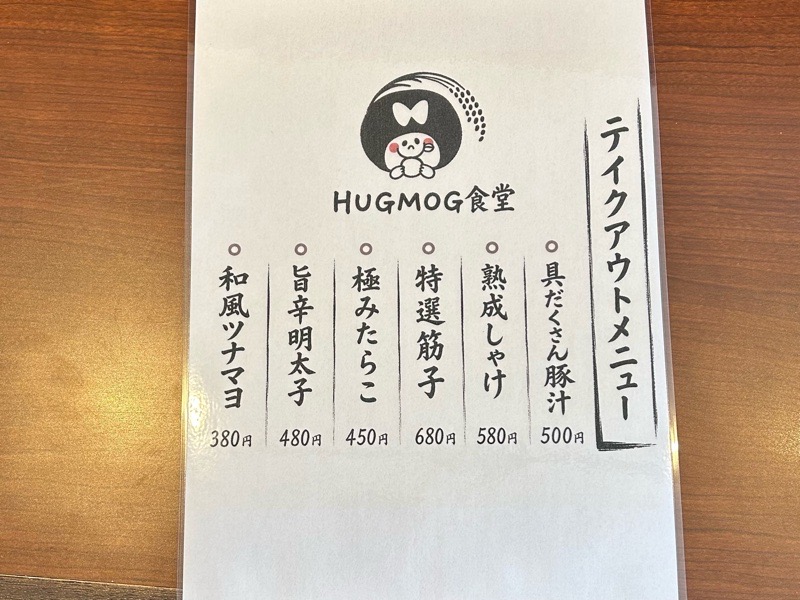 HUGMOG食堂
テイクアウトメニュー
具だくさん豚汁
500円
熟成しゃけ
580円
特選筋子
680円
極みたらこ
450円
旨辛明太子
480円
和風ツナマヨ
380円